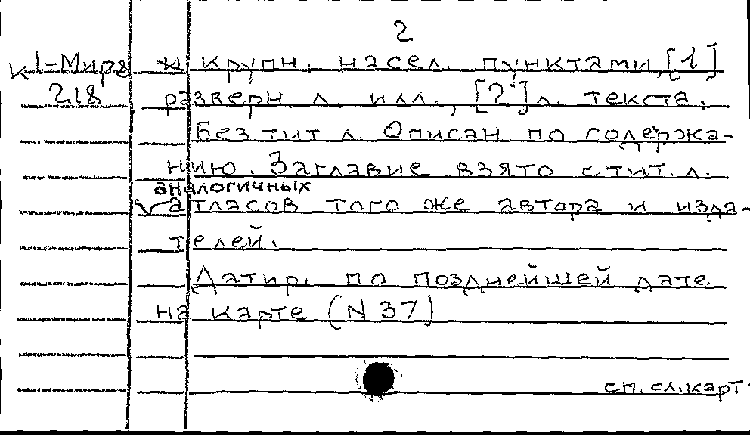 2
К 1-Мира
218
и крупн. насел. пунктами, [1]
разверн. л. илл., [2] л. текста.
Без тит. л. Описан по содержа-
нию. Заглавие взято с тит. л.
аналогичных
атласов того же автора и изда-
телей.
Датир. по позднейшей дате
на карте (N 37)
см. сл. карт.